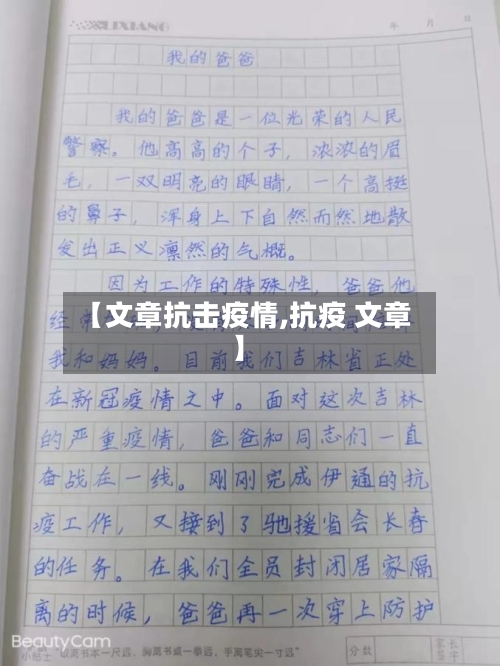 LIXIANG
年 月 日
我的爸爸
我的爸爸是一位光荣的人民
警察。他高高的个子，浓浓的眉
毛，一双明亮的眼睛，一个高挺
的鼻子，浑身上下自然而然地散
发出正义凛然的气概。
因为工作的特殊性，爸爸他
经常
【文章抗击疫情,抗疫 文章
】
我和妈妈。目前我们吉林省正处
在新冠疫情之中。面对这次吉林
的严重疫情，爸爸和同志们一直
奋战在一线。刚刚完成伊通的抗
疫工作，又接到了驰援省会长春
的任务。在我们全员封闭居家隔
离的时候，爸爸再一次穿上防护
小贴士 眼离书本一尺远，胸离书桌一拳远，手离笔尖一寸远
分数 家长签字
BeautyCam